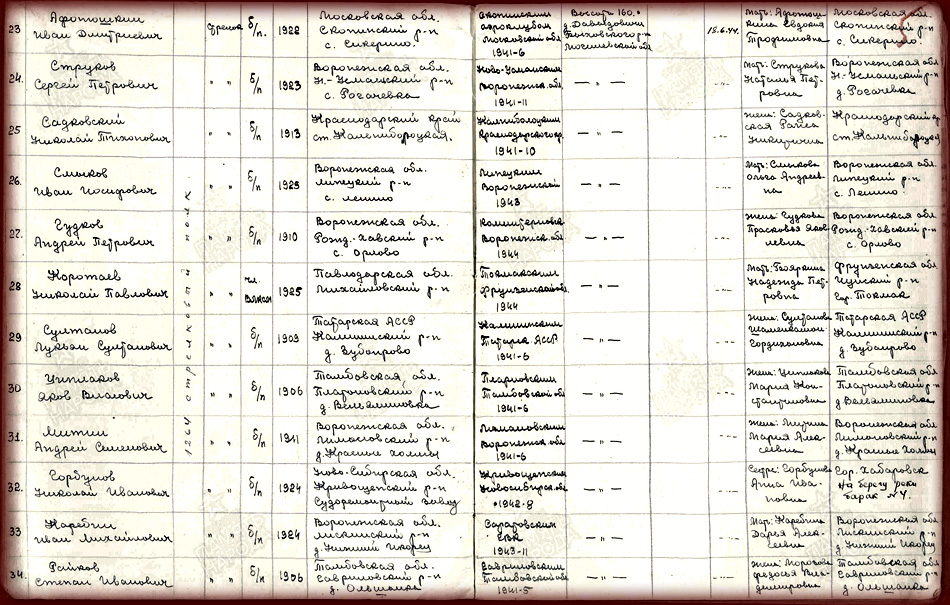 23 Афонюшкин Иван Дмитриевич стрелок б/п 1922 Московская обл. Скопинский р-н с. Секирино. Скопинским Московской обл 1941-6 Высота 160.0 д. Давыдовичи Могилевской обл 15.6.44. мать: Евдокия Трофимовна Московская обл. Скопинский р-н с. Секирино.
24. Струков Сергей Петрович " " б/п 1923 Воронежская обл. Н-Усманский р-н с. Рогачевка Ново-Усманским Воронежск. обл. 1941-11 — " — Мать: Струкова Наталья Петровна Воронежская обл Н-Усманский р-н д. Рогачевка
25 Садковский Николай Тихонович " " б/п 1913 Краснодарский край Краснодарского кр. 1941-10 — " — жена: Садковская Раиса Никитична Краснодарский кр
26. Смыков Иван Иосифович " " б/п 1925 Воронежская обл. Липецкий р-н с. Ленино Липецким Воронежской 1943 — " — Мать: Смыкова Ольга Андреевна Воронежская обл Липецкий р-н с. Ленино
27. Гудков Андрей Петрович " " б/п 1910 Воронежская обл. Рожд.-Хавский р-н с. Орлово Воронежск. обл 1944 — " — Жена: Гудкова Прасковья Яковлевна Воронежская обл Рожд-Хавский р-н с. Орлово
28 Коротаев Николай Павлович " " чл. ВЛКСМ 1925 Павлодарская обл. Михайловский р-н Токмакским Фрунзенской обл 1944 — " — Мать: Надежда Петровна Фрунзенская обл Чуйский р-н гор. Токмак
29 Султанов Лукман Султанович " " б/п 1909 Татарская АССР Калининский р-н д. Зубаирово Калининским Татарск АССР 1941-6 — " — Жена: Султанова Татарская АССР Калининский р-н д. Зубаирово
30 Яков " " б/п 1906 Тамбовская обл. Платоновский р-н Тамбовской обл 1941-6 — " — Жена: Мария Константиновна Тамбовская обл Платоновский р-н
31. Митин Андрей Семенович " " б/п 1911 Воронежская обл. д. Красные Холмы Воронежск. обл 1941-6 — " — жена: Митина Мария Алексеевна Воронежская обл д. Красные Холмы
32. Горбунов Николай Иванович " " б/п 1924 Ново-Сибирская обл. Кривощепский р-н Судоремонтный завод Кривощепским Новосибирск. об 1942-8 — " — Сестра: Горбунова Анна Ивановна Гор. Хабаровск на берегу реки барак №4.
33 Каребин Иван Михайлович " " б/п 1924 Воронежская обл. Лискинский р-н д. Нижний Икорец Саратовским 1943-11 — " — Мать: Каребина Дарья Алексеевна Воронежская обл Лискинский р-н д. Нижний Икорец
34. Райков Степан Иванович " " б/п 1906 Тамбовская обл. Гавриловский р-н д. Ольшанка Гавриловским Тамбовской обл 1941-5 — " — Жена: Федосья Владимировна Тамбовская обл Гавриловский р-н д. Ольшанка
1264 стрелковый полк